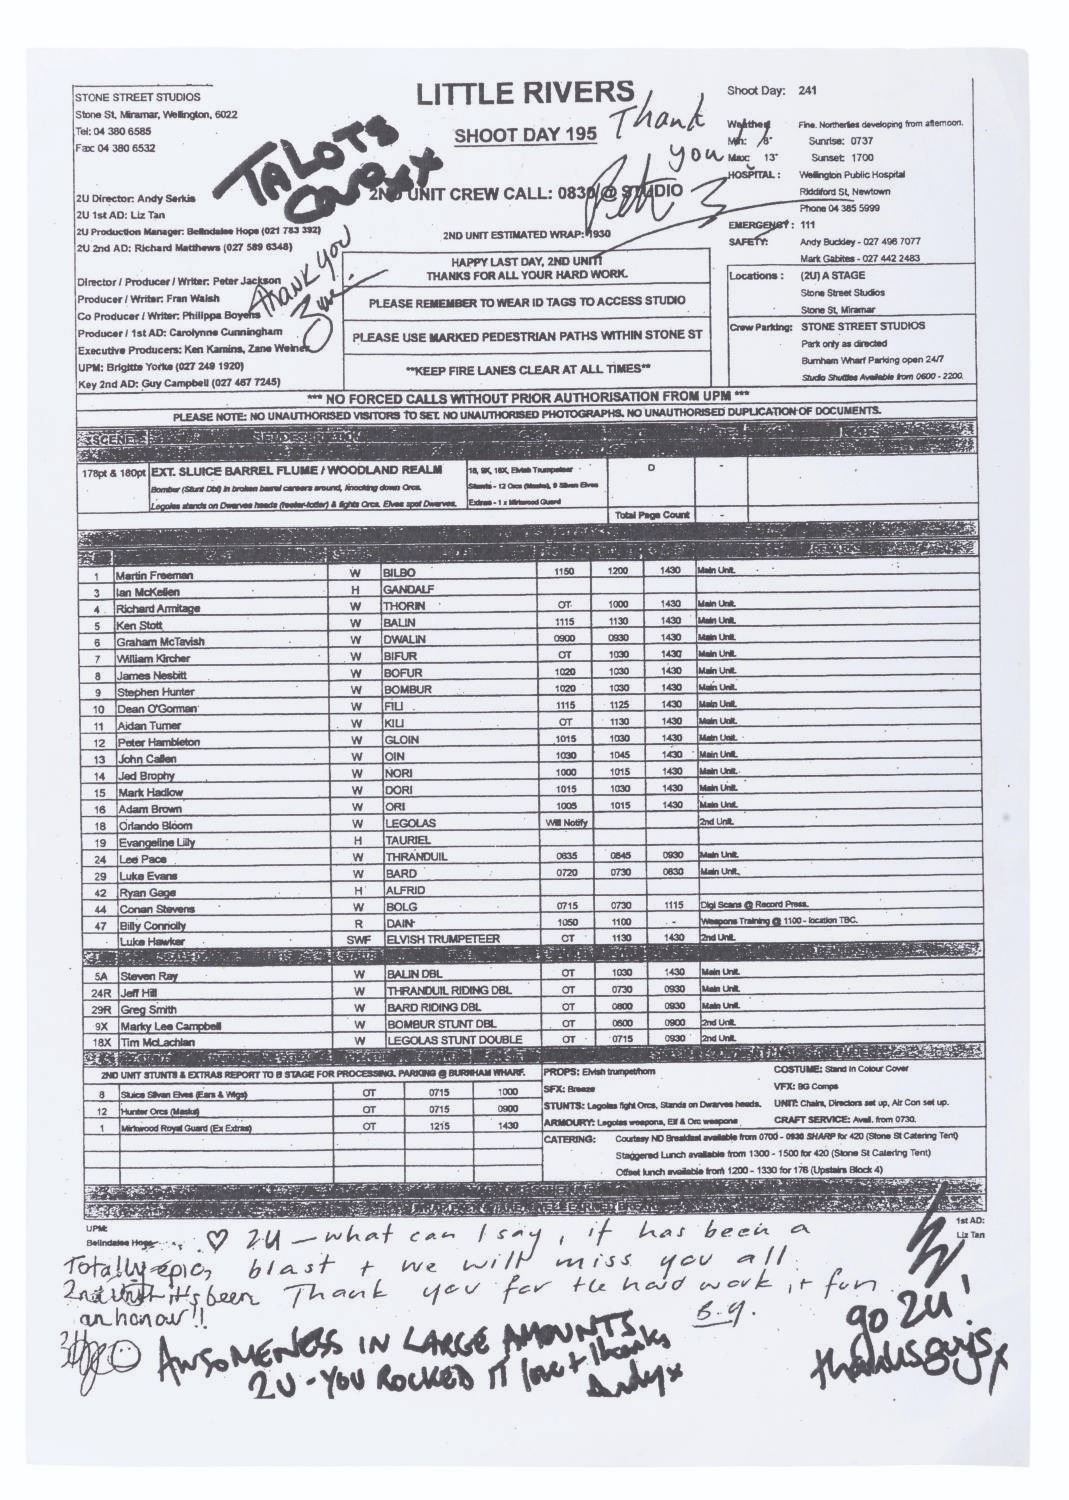 STONE STREET STUDIOS
Stone St, Miramar, Wellington, 6022
Tel: 04 380 6585
Fax: 04 380 6532
LITTLE RIVERS
SHOOT DAY 195
Thank
you
Pete
TA LOTS
Shoot Day: 241
Weather: Fine. Northerlies developing from afternoon.
Min: 8° Sunrise: 0737
Max: 13° Sunset: 1700
HOSPITAL: Wellington Public Hospital
Riddiford St, Newtown
Phone 04 385 5999
EMERGENCY: 111
SAFETY: Andy Buckley - 027 496 7077
Mark Gabites - 027 442 2483
2ND UNIT CREW CALL: 0830 @ STUDIO
2ND UNIT ESTIMATED WRAP: 1930
2U Director: Andy Serkis
2U 1st AD: Liz Tan
2U Production Manager: Belindalee Hope (021 783 392)
2U 2nd AD: Richard Matthews (027 589 6348)
Thank you
Director / Producer / Writer: Peter Jackson
Producer / Writer: Fran Walsh
Co Producer / Writer: Philippa Boyens
Producer / 1st AD: Carolynne Cunningham
Executive Producers: Ken Kamins, Zane Weiner
UPM: Brigitte Yorke (027 249 1920)
Key 2nd AD: Guy Campbell (027 467 7245)
HAPPY LAST DAY, 2ND UNIT!
THANKS FOR ALL YOUR HARD WORK.
PLEASE REMEMBER TO WEAR ID TAGS TO ACCESS STUDIO
PLEASE USE MARKED PEDESTRIAN PATHS WITHIN STONE ST
**KEEP FIRE LANES CLEAR AT ALL TIMES**
Locations: (2U) A STAGE
Stone Street Studios
Stone St, Miramar
Crew Parking: STONE STREET STUDIOS
Park only as directed
Burnham Wharf Parking open 24/7
Studio Shuttles Available from 0600 - 2200.
*** NO FORCED CALLS WITHOUT PRIOR AUTHORISATION FROM UPM ***
PLEASE NOTE: NO UNAUTHORISED VISITORS TO SET. NO UNAUTHORISED PHOTOGRAPHS. NO UNAUTHORISED DUPLICATION OF DOCUMENTS.
SCENE
178pt & 180pt EXT. SLUICE BARREL FLUME / WOODLAND REALM 18, 9X, 18X, Elvish Trumpeteer D -
Bombur (Stunt Dbl) in broken barrel careers around, knocking down Orcs. Stunts - 12 Orcs (Masks), 8 Silvan Elves
Legolas stands on Dwarves heads (footer-totter) & fights Orcs. Elves spot Dwarves. Extras - 1 x Mirkwood Guard
Total Page Count -
1 Martin Freeman W BILBO 1150 1200 1430 Main Unit.
3 Ian McKellen H GANDALF
4 Richard Armitage W THORIN OT 1000 1430 Main Unit.
5 Ken Stott W BALIN 1115 1130 1430 Main Unit.
6 Graham McTavish W DWALIN 0900 0930 1430 Main Unit.
7 William Kircher W BIFUR OT 1030 1430 Main Unit.
8 James Nesbitt W BOFUR 1020 1030 1430 Main Unit.
9 Stephen Hunter W BOMBUR 1020 1030 1430 Main Unit.
10 Dean O'Gorman W FILI 1115 1125 1430 Main Unit.
11 Aidan Turner W KILI OT 1130 1430 Main Unit.
12 Peter Hambleton W GLOIN 1015 1030 1430 Main Unit.
13 John Callen W OIN 1030 1045 1430 Main Unit.
14 Jed Brophy W NORI 1000 1015 1430 Main Unit.
15 Mark Hadlow W DORI 1015 1030 1430 Main Unit.
16 Adam Brown W ORI 1005 1015 1430 Main Unit.
18 Orlando Bloom W LEGOLAS Will Notify 2nd Unit.
19 Evangeline Lilly H TAURIEL
24 Lee Pace W THRANDUIL 0635 0845 0930 Main Unit.
29 Luke Evans W BARD 0720 0730 0830 Main Unit.
42 Ryan Gage H ALFRID
44 Conan Stevens W BOLG 0715 0730 1115 Digi Scans @ Record Press.
47 Billy Connolly R DAIN 1050 1100 - Weapons Training @ 1100 - location TBC.
Luke Hawker SWF ELVISH TRUMPETEER OT 1130 1430 2nd Unit.
5A Steven Ray W BALIN DBL OT 1030 1430 Main Unit.
24R Jeff Hill W THRANDUIL RIDING DBL OT 0730 0930 Main Unit.
29R Greg Smith W BARD RIDING DBL OT 0800 0930 Main Unit.
9X Marky Lee Campbell W BOMBUR STUNT DBL OT 0600 0900 2nd Unit.
18X Tim McLachlan W LEGOLAS STUNT DOUBLE OT 0715 0930 2nd Unit.
2ND UNIT STUNTS & EXTRAS REPORT TO B STAGE FOR PROCESSING. PARKING @ BURNHAM WHARF.
8 Sluice Silvan Elves (Ears & Wigs) OT 0715 1000
12 Hunter Orcs (Masks) OT 0715 0900
1 Mirkwood Royal Guard (Ex Extras) OT 1215 1430
PROPS: Elvish trumpet/horn COSTUME: Stand in Colour Cover
SFX: Breeze VFX: BG Comps
STUNTS: Legolas fight Orcs, Stands on Dwarves heads. UNIT: Chairs, Directors set up, Air Con set up.
ARMOURY: Legolas weapons, Elf & Orc weapons CRAFT SERVICE: Avail. from 0730.
CATERING: Courtesy ND Breakfast available from 0700 - 0930 SHARP for 420 (Stone St Catering Tent)
Staggered Lunch available from 1300 - 1500 for 420 (Stone St Catering Tent)
Offset lunch available from 1200 - 1330 for 178 (Upstairs Block 4)
UPM:
Belindalee Hope
1st AD:
Liz Tan
♡ 2U – what can I say, it has been a
Totally epic, blast + we will miss you all.
2nd Unit it's been Thank you for the hard work, + fun
an honour!! B.Y.
AWSOMENESS IN LARGE AMOUNTS
2U - YOU ROCKED IT love + thanks
Andy x
go 2U!
thanks guys x